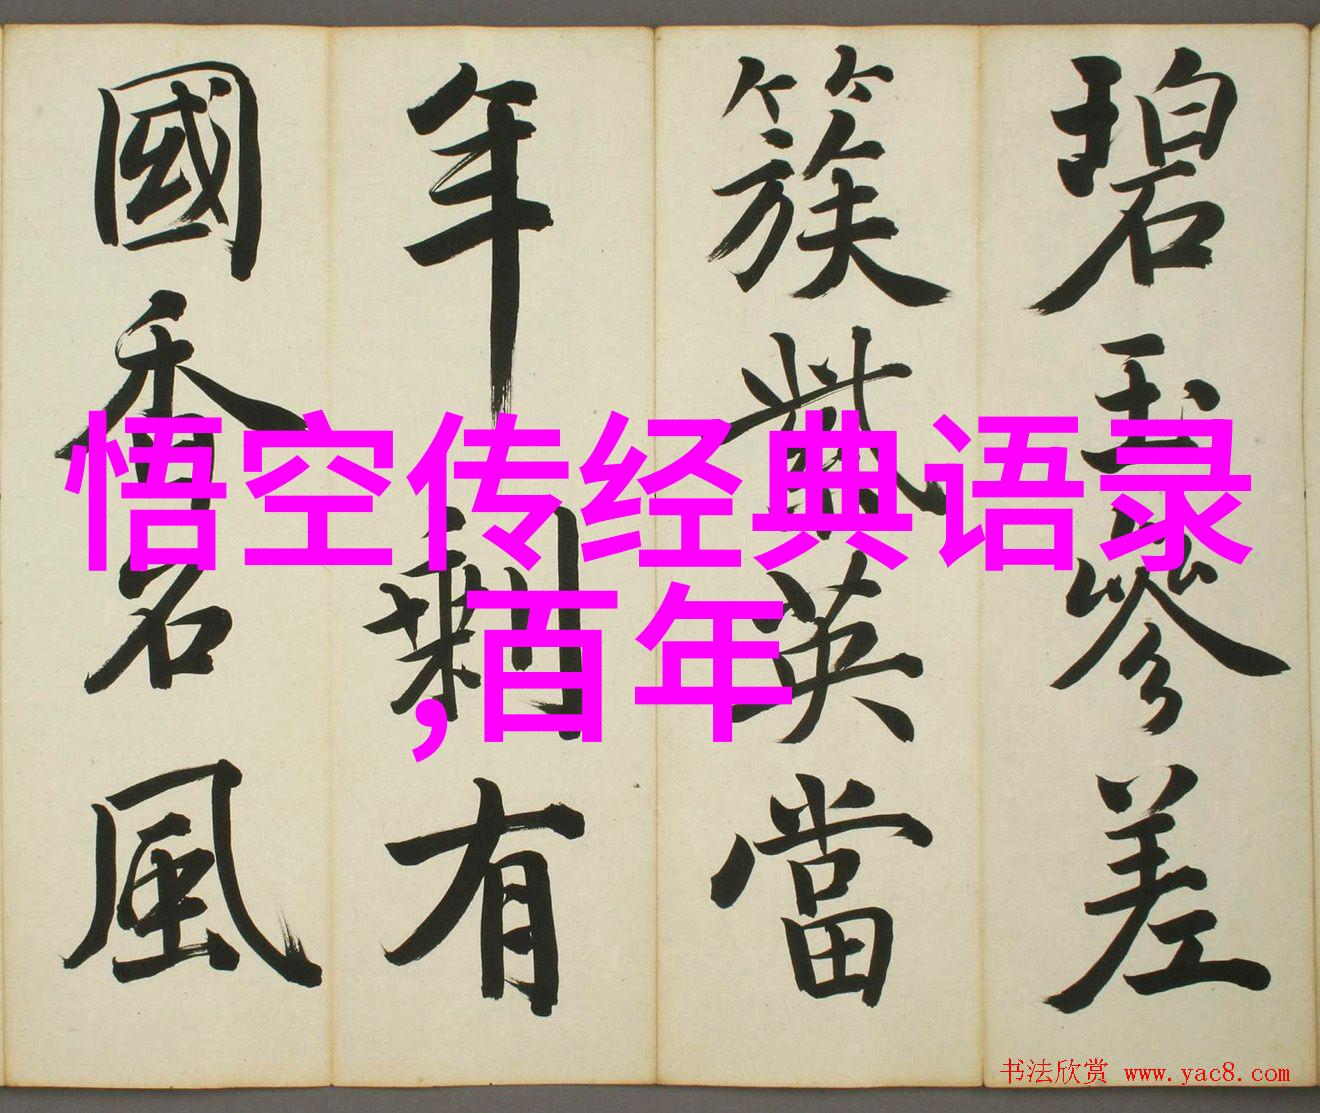 碧玉參差
簇紫英當
年剩有
國香名風
悟空传经典语录
,百年
书法欣赏 www.yac8.com